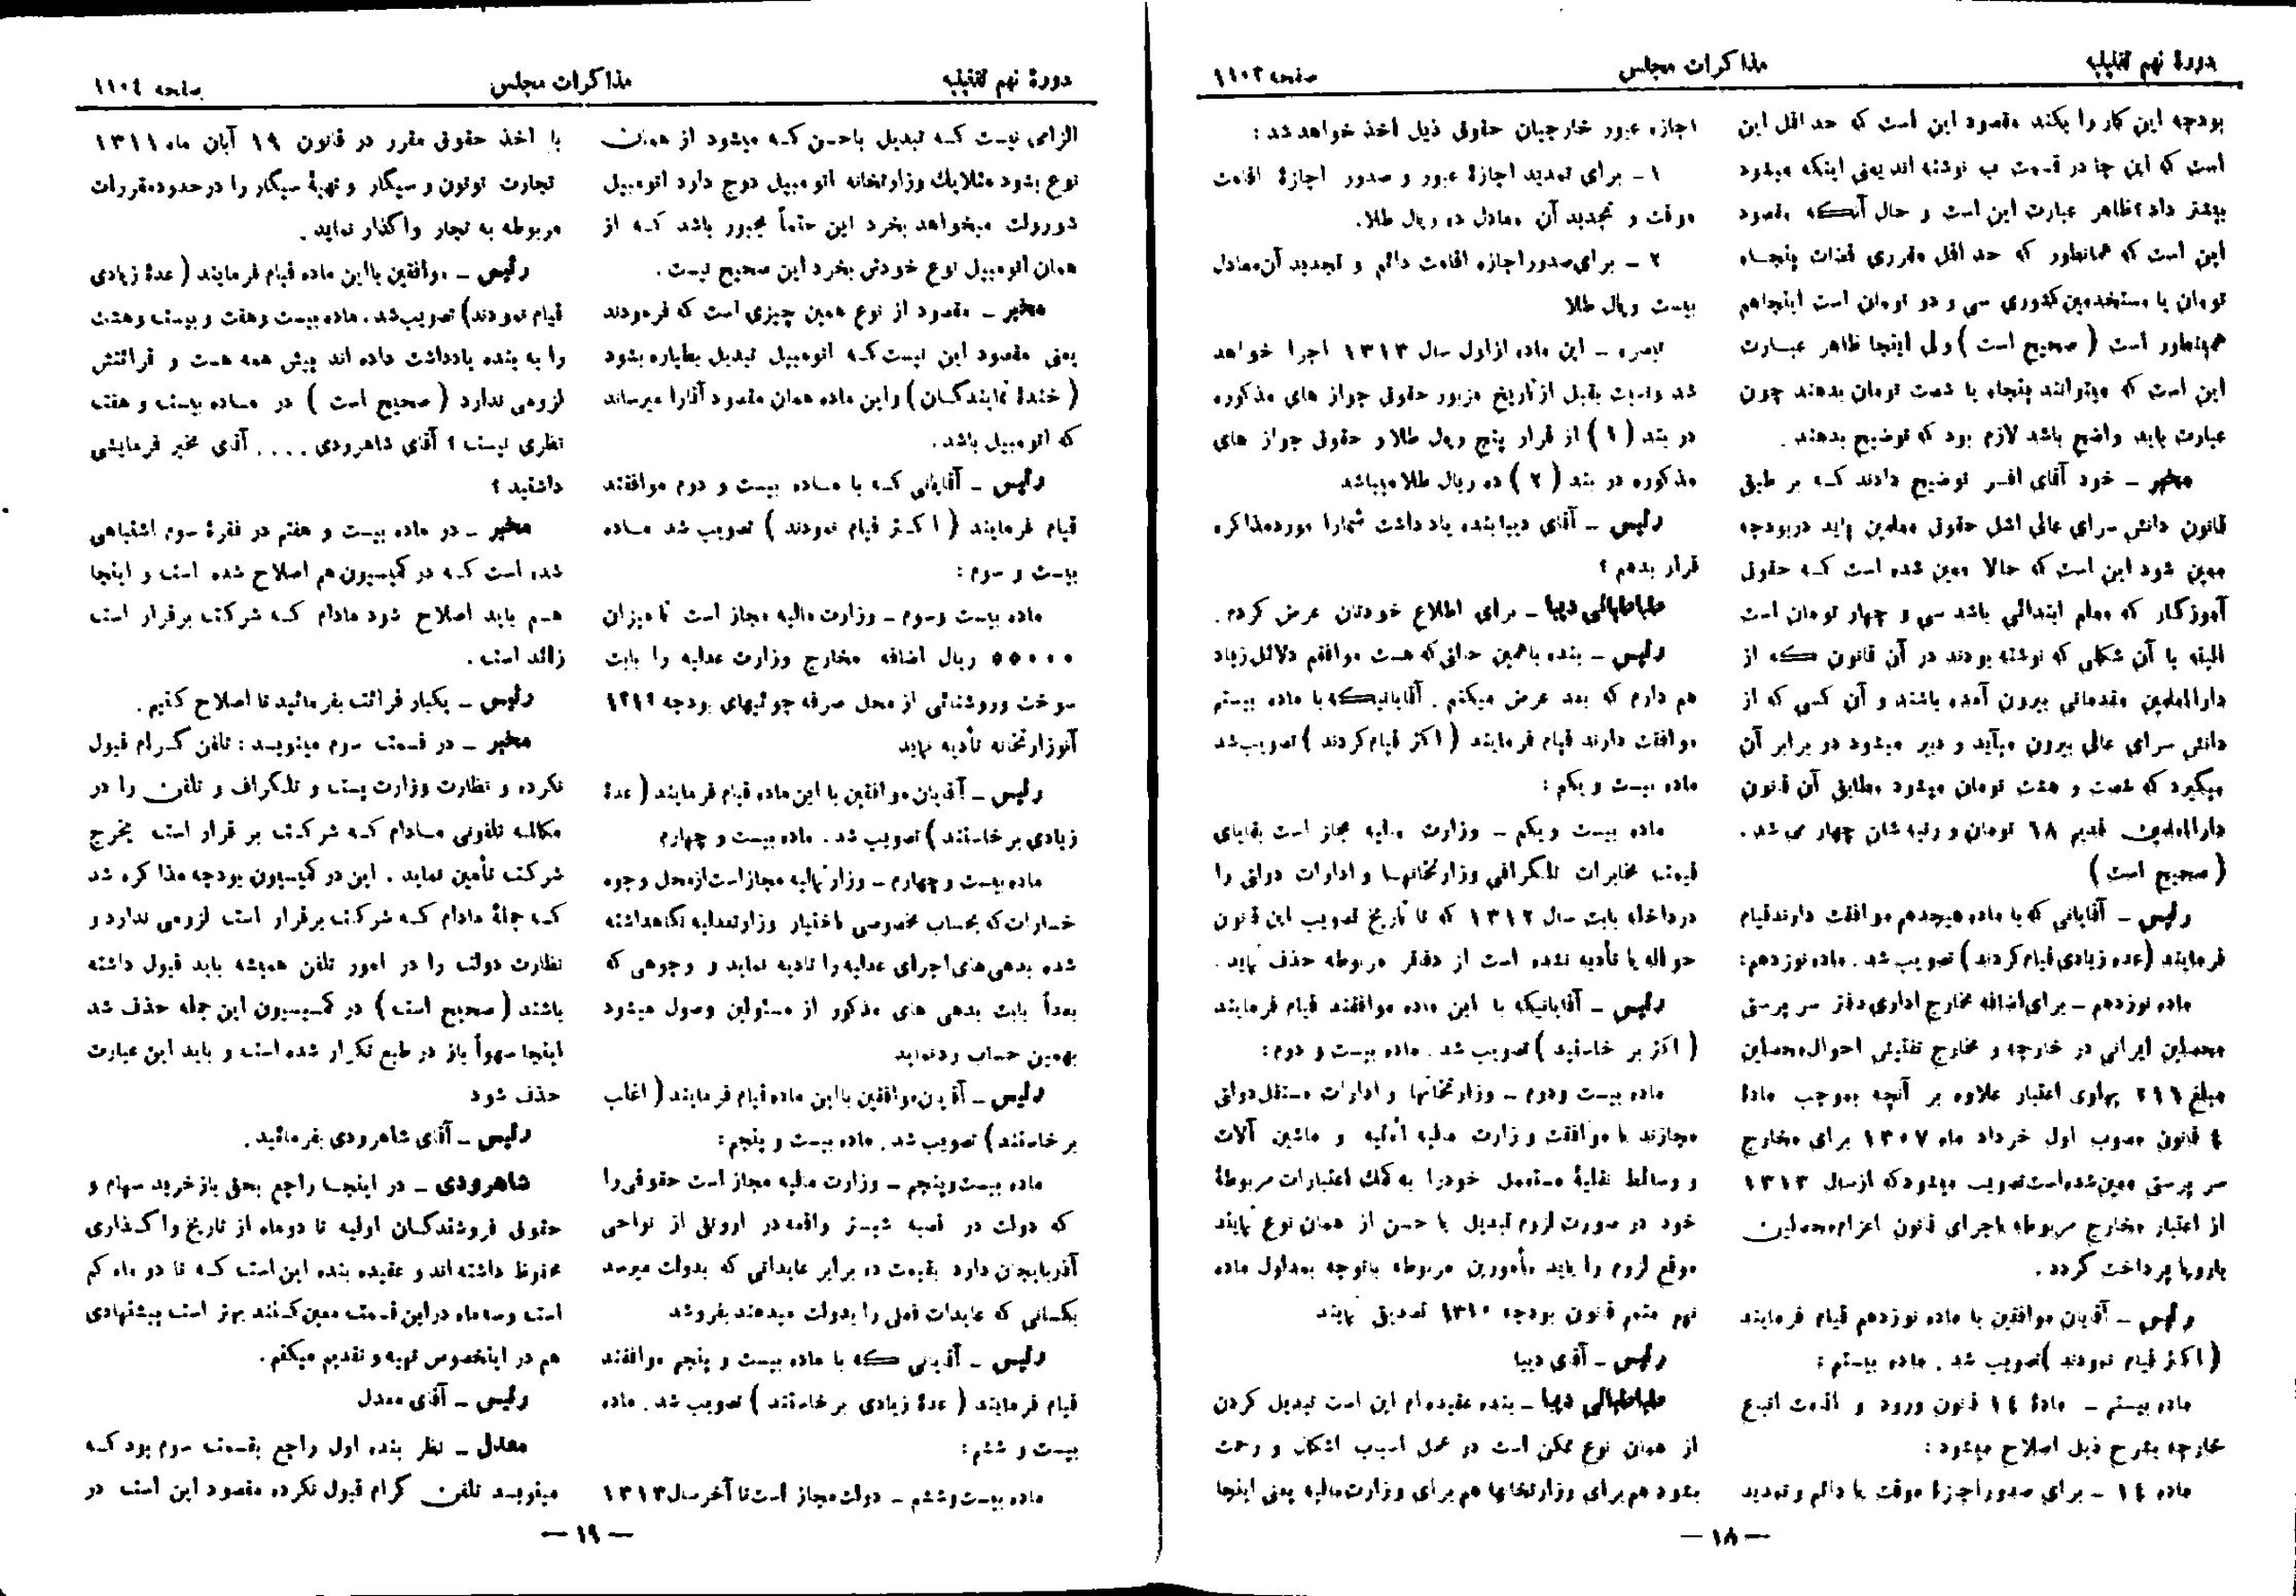 دورهٔ نهم تقنینیه
مذاکرات مجلس
صفحه ۱۱۰۳
بودجه این کار را بکند مقصود این است که حد اقل این
است که این جا در قسمت ب نوشته اند یعنی اینکه میشود
بیشتر داد؟ ظاهر عبارت این است و حال آنکه مقصود
این است که همانطور که حد اقل مقرری قضات پنجاه
تومان یا مستخدمین کشوری سی و دو تومان است اینجاهم
همینطور است ( صحیح است ) ولی اینجا ظاهر عبارت
این است که میتوانند پنجاه یا شصت تومان بدهند چون
عبارت باید واضح باشد لازم بود که توضیح بدهند .
مخبر - خود آقای افسر توضیح دادند که بر طبق
قانون دانش سرای عالی اشل حقوق معلمین باید در بودجه
معین شود این است که حالا معین شده است که حقوق
آموزگار که معلم ابتدائی باشد سی و چهار تومان است
البته با آن شکلی که نوشته بودند در آن قانون که از
دارالمعلمین مقدماتی بیرون آمده باشند و آن کسی که از
دانش سرای عالی بیرون میآید و دبیر میشود در برابر آن
میگیرد که شصت و هشت تومان میشود مطابق آن قانون
دارالمعلمین قدیم ۶۸ تومان و رتبه شان چهار می شد .
( صحیح است )
رئیس - آقایانی که با ماده هیجدهم موافقت دارند قیام
فرمایند (عده زیادی قیام کردند) تصویب شد . ماده نوزدهم:
ماده نوزدهم - برای اضافه مخارج اداری دفتر سر پرستی
محصلین ایرانی در خارجه و مخارج تفتیش احوال محصلین
مبلغ ۲۱۶ پهلوی اعتبار علاوه بر آنچه بموجب مادهٔ
٤ قانون مصوب اول خرداد ماه ۱۳۰۷ برای مخارج
سر پرستی معین شده است تصویب میشود که از سال ۱۳۱۳
از اعتبار مخارج مربوطه باجرای قانون اعزام محصلین
باروپا پرداخت گردد .
رئیس - آقایان موافقین با ماده نوزدهم قیام فرمایند
( اکثر قیام نمودند )تصویب شد . ماده بیستم :
ماده بیستم - مادهٔ ١٤ قانون ورود و اقامت اتباع
خارجه بشرح ذیل اصلاح میشود :
ماده ١٤ - برای صدور اجازهٔ موقت یا دائم و تمدید
اجازه عبور خارجیان حقوق ذیل اخذ خواهد شد :
۱ - برای تمدید اجازهٔ عبور و صدور اجازهٔ اقامت
موقت و تجدید آن معادل ده ریال طلا.
۲ - برای صدور اجازه اقامت دائم و تجدید آن معادل
بیست ریال طلا
تبصره - این ماده از اول سال ۱۳۱۳ اجرا خواهد
شد و نسبت بقبل از تاریخ مزبور حقوق جواز های مذکوره
در بند ( ۱ ) از قرار پنج ریال طلا و حقوق جواز های
مذکوره در بند ( ۲ ) ده ریال طلا میباشد
رئیس - آقای دیبا بنده یادداشت شمارا مورد مذاکره
قرار بدهم ؟
طباطبائی دیبا - برای اطلاع خودتان عرض کردم .
رئیس - بنده باهمین حالی که هست موافقم دلائل زیاد
هم دارم که بعد عرض میکنم . آقایانیکه با ماده بیستم
موافقت دارند قیام فرمایند ( اکثر قیام کردند ) تصویب شد
ماده بیست و یکم :
ماده بیست و یکم - وزارت مالیه مجاز است بقایای
قیمت مخابرات تلگرافی وزارتخانها و ادارات دولتی را
درداخله بابت سال ۱۳۱۲ که تا تاریخ تصویب این قانون
حواله یا تأدیه نشده است از دفاتر مربوطه حذف نماید .
رئیس - آقایانیکه با این ماده موافقند قیام فرمایند
( اکثر بر خاستند ) تصویب شد . ماده بیست و دوم:
ماده بیست ودوم - وزارتخانها و ادارات مستقل دولتی
مجازند با موافقت وزارت مالیه اثاثیه و ماشین آلات
و وسائط نقلیهٔ مستعمل خودرا به کمک اعتبارات مربوطهٔ
خود در صورت لزوم تبدیل با حسن از همان نوع نمایند
موقع لزوم را باید مأمورین مربوطه باتوجه بمدلول ماده
نهم متمم قانون بودجه ۱۳۱۰ تصدیق نمایند
رئیس - آقای دیبا
طباطبائی دیبا - بنده عقیده ام این است تبدیل کردن
از همان نوع ممکن است در عمل اسباب اشکال و زحمت
بشود هم برای وزارتخانها هم برای وزارت مالیه یعنی اینجا
— ۱۸ —
دورهٔ نهم تقنینیه
مذاکرات مجلس
صفحه ۱۱۰٤
الزامی نیست که تبدیل باحسن که میشود از همان
نوع بشود مثلا یك وزارتخانه اتومبیل دوج دارد اتومبیل
شورولت میخواهد بخرد این حتماً مجبور باشد که از
همان اتومبیل نوع خودش بخرد این صحیح نیست .
مخبر - مقصود از نوع همین چیزی است که فرمودند
یعنی مقصود این نیست که اتومبیل تبدیل بطیاره بشود
( خندهٔ نمایندگان ) و این ماده همان مقصود آقارا میرساند
که اتومبیل باشد .
رئیس - آقایانی که با ماده بیست و دوم موافقند
قیام فرمایند ( اکثر قیام نمودند ) تصویب شد ماده
بیست و سوم :
ماده بیست وسوم - وزارت مالیه مجاز است تا میزان
۵۵۰۰۰ ریال اضافه مخارج وزارت عدلیه را بابت
سوخت وروشنائی از محل صرفه جوئیهای بودجه ۱۳۱۲
آنوزارتخانه تأدیه نماید
رئیس - آقایان موافقین با این ماده قیام فرمایند ( عدهٔ
زیادی بر خاستند ) تصویب شد . ماده بیست و چهارم
ماده بیست و چهارم - وزارتمالیه مجاز است از محل وجوه
خسارات که بحساب مخصوصی باختیار وزارتعدلیه نگاهداشته
شده بدهی های اجرای عدلیه را تادیه نماید و وجوهی که
بعداً بابت بدهی های مذکور از مسئولین وصول میشود
بهمین حساب ردنماید
رئیس - آقایان موافقین با این ماده قیام فرمایند ( اغلب
بر خاستند ) تصویب شد . ماده بیست و پنجم :
ماده بیست وپنجم - وزارت مالیه مجاز است حقوقی را
که دولت در قصبه شبستر واقعه در ارونق از نواحی
آذربایجان دارد بقیمت ده برابر عایداتی که بدولت میرسد
بکسانی که عایدات فعلی را بدولت میدهند بفروشد
رئیس - آقایانی که با ماده بیست و پنجم موافقند
قیام فرمایند ( عدهٔ زیادی بر خاستند ) تصویب شد . ماده
بیست و ششم :
ماده بیست وششم - دولت مجاز است تا آخر سال ۱۳۱۳
با اخذ حقوق مقرر در قانون ۱۹ آبان ماه ۱۳۱۱
تجارت توتون و سیگار و تهیهٔ سیگار را در حدود مقررات
مربوطه به تجار واگذار نماید .
رئیس - موافقین با این ماده قیام فرمایند ( عدهٔ زیادی
قیام نمودند) تصویب شد . ماده بیست وهفت و بیست وهشت
را به بنده یادداشت داده اند پیش همه هست و قرائتش
لزومی ندارد ( صحیح است ) در ماده بیست و هفت
نظری نیست ؟ آقای شاهرودی .... آقای مخبر فرمایشی
داشتید ؟
مخبر - در ماده بیست و هفتم در فقرهٔ سوم اشتباهی
شده است که در کمیسیون هم اصلاح شده است و اینجا
هم باید اصلاح شود مادام که شرکت برقرار است
زائد است .
رئیس - یکبار قرائت بفرمائید تا اصلاح کنیم .
مخبر - در قسمت سوم مینویسد : تلفن گرام قبول
نکرده و نظارت وزارت پست و تلگراف و تلفن را در
مکالمه تلفونی مادام که شرکت بر قرار است بخرج
شرکت تأمین نماید . این در کمیسیون بودجه مذاکره شد
که جملهٔ مادام که شرکت برقرار است لزومی ندارد و
نظارت دولت را در امور تلفن همیشه باید قبول داشته
باشند ( صحیح است ) در کمیسیون این جمله حذف شد
اینجا سهواً باز در طبع تکرار شده است و باید این عبارت
حذف شود
رئیس - آقای شاهرودی بفرمائید .
شاهرودی - در اینجا راجع بحق بازخرید سهام و
حقوق فروشندگان اولیه تا دوماه از تاریخ واگذاری
محفوظ داشته اند و عقیده بنده این است که تا دو ماه کم
است وسه ماه در این قسمت معین کنند بهتر است پیشنهادی
هم در اینخصوص تهیه و تقدیم میکنم .
رئیس - آقای معدل
معدل - نظر بنده اول راجع بقسمت سوم بود که
مینویسد تلفن گرام قبول نکرده مقصود این است در
— ۱۹ —